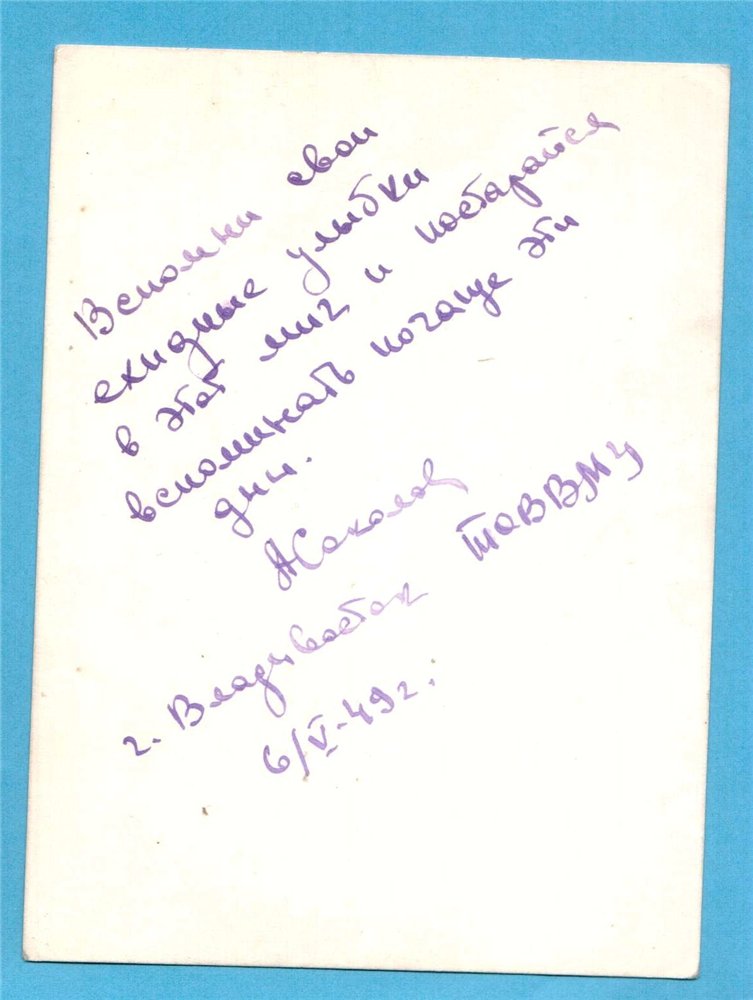 Вспомни свои
ехидные улыбки
в этот миг и постарайся
вспоминать почаще эти
дни.
АСоколов
г. Владивосток ТОВВМУ
6/V-49г.